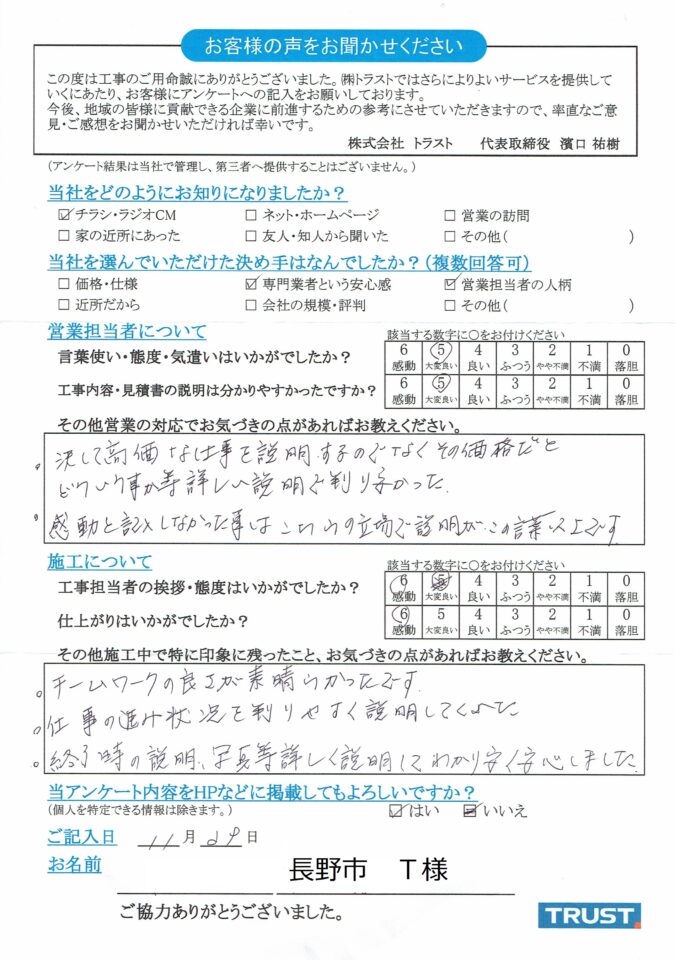 お客様の声をお聞かせください
この度は工事のご用命誠にありがとうございました。㈱トラストではさらによりよいサービスを提供して
いくにあたり、お客様にアンケートへの記入をお願いしております。
今後、地域の皆様に貢献できる企業に前進するための参考にさせていただきますので、率直なご意
見・ご感想をお聞かせいただければ幸いです。
株式会社 トラスト 代表取締役 濱口 祐樹
(アンケート結果は当社で管理し、第三者へ提供することはございません。)
当社をどのようにお知りになりましたか?
☑ チラシ・ラジオCM □ ネット・ホームページ □ 営業の訪問
□ 家の近所にあった □ 友人・知人から聞いた □ その他( )
当社を選んでいただけた決め手はなんでしたか?(複数回答可)
□ 価格・仕様 ☑ 専門業者という安心感 ☑ 営業担当者の人柄
□ 近所だから □ 会社の規模・評判 □ その他( )
営業担当者について 該当する数字に○をお付けください
言葉使い・態度・気遣いはいかがでしたか? 6 5 4 3 2 1 0
感動 大変良い 良い ふつう やや不満 不満 落胆
工事内容・見積書の説明は分かりやすかったですか? 6 5 4 3 2 1 0
感動 大変良い 良い ふつう やや不満 不満 落胆
その他営業の対応でお気づきの点があればお教えください。
決して高価な仕事を説明するのでなくその価格だと
どういう事か等詳しい説明で判り易かった.
感動と記入しなかった事はこちらの立場で説明がこの評以上です
施工について 該当する数字に○をお付けください
工事担当者の挨拶・態度はいかがでしたか? 6 5 4 3 2 1 0
感動 大変良い 良い ふつう やや不満 不満 落胆
仕上がりはいかがでしたか? 6 5 4 3 2 1 0
感動 大変良い 良い ふつう やや不満 不満 落胆
その他施工中で特に印象に残ったこと、お気づきの点があればお教えください。
チームワークの良さが素晴らかったです.
仕事の進み状況を判りやすく説明してくれた
終了時の説明、写真等詳しく説明してわかり安く安心しました.
当アンケート内容をHPなどに掲載してもよろしいですか?
(個人を特定できる情報は除きます。) ☑ はい □ いいえ
ご記入日 11 月 29 日
お名前 長野市 T様
ご協力ありがとうございました。
TRUST.